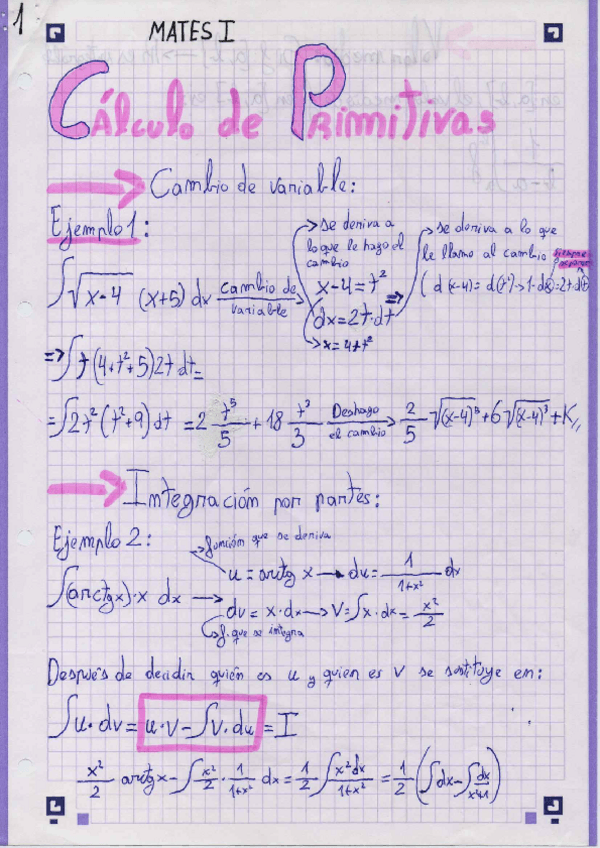 1
MATES I
Cálculo de Primitivas
Cambio de variable:
Ejemplo 1:
se deriva a lo que le hago el cambio
se deriva a lo que le llame al cambio
∫√(x-4) (x+5) dx cambio de variable
x-4=t²
dx=2t·dt
x=4+t²
⇒
(d(x-4)=d(t²)→1·dx=2t·dt)
⇒∫t(4+t²+5)2t dt=
=∫2t²(t²+9) dt =2 t⁵/5 + 18 t³/3 Deshago el cambio 2/5 √(x-4)⁵+6√(x-4)³+K,,
Integración por partes:
Ejemplo 2:
función que se deriva
u=arctg x → du= 1/(1+x²) dx
∫(arctgx)·x dx →
dv= x·dx → V=∫x·dx= x²/2
f. que se integra
Después de decidir quién es u y quien es v se sustituye en:
∫u·dv= u·v-∫v·du = I
x²/2 arctgx-∫x²/2·1/(1+x²) dx= 1/2∫x²dx/(1+x²) = 1/2(∫dx-∫dx/(x²+1))